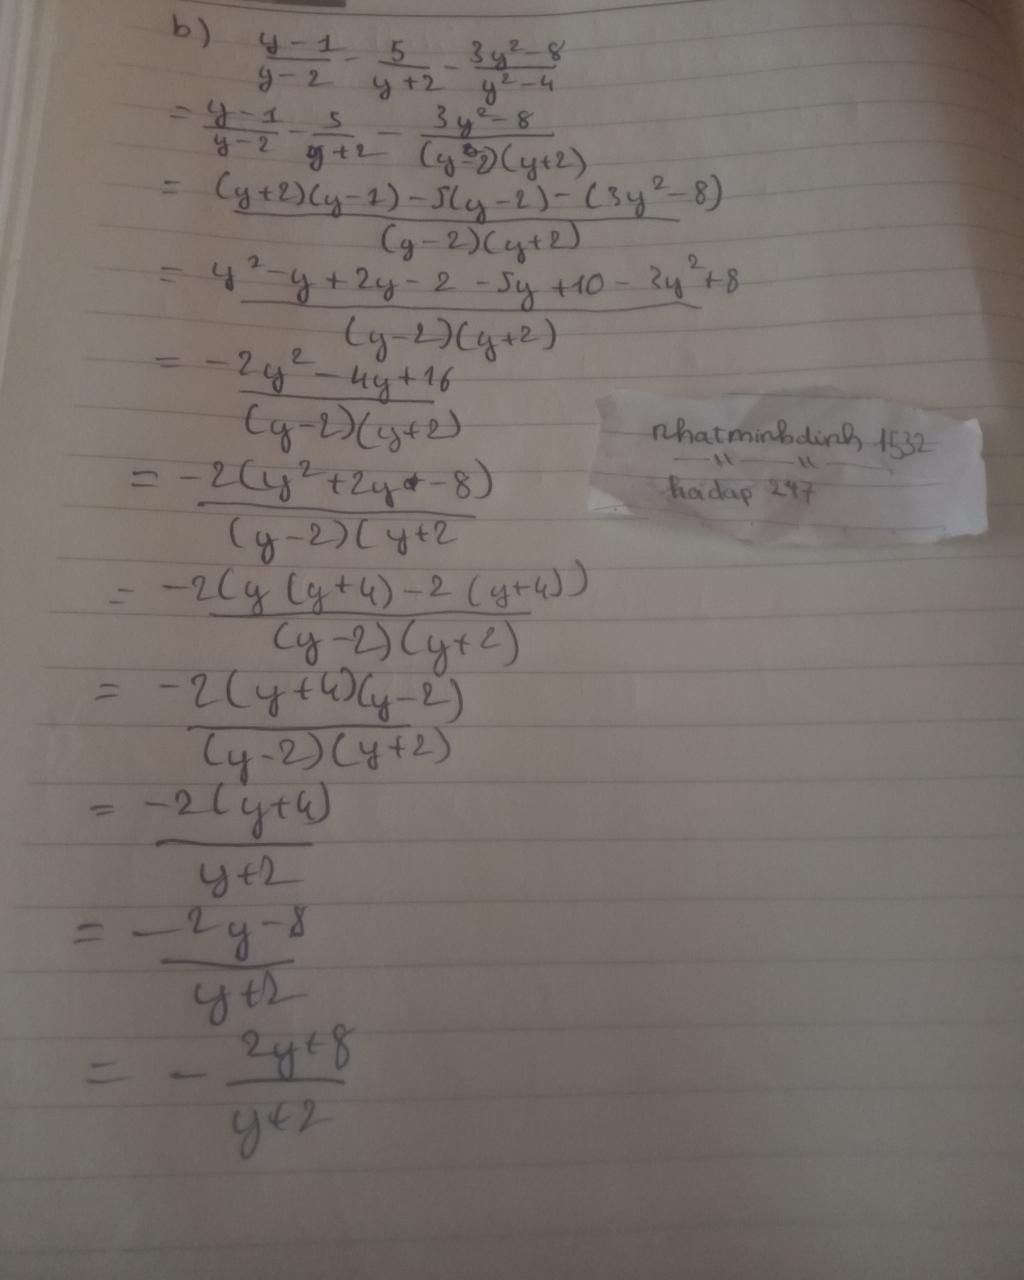 b) \frac{y-1}{y-2} - \frac{5}{y+2} - \frac{3y^2-8}{y^2-4}
= \frac{y-1}{y-2} - \frac{5}{y+2} - \frac{3y^2-8}{(y-2)(y+2)}
= \frac{(y+2)(y-1)-5(y-2)-(3y^2-8)}{(y-2)(y+2)}
= \frac{y^2-y+2y-2-5y+10-3y^2+8}{(y-2)(y+2)}
= \frac{-2y^2-4y+16}{(y-2)(y+2)}
= \frac{-2(y^2+2y-8)}{(y-2)(y+2}
= \frac{-2(y(y+4)-2(y+4))}{(y-2)(y+2)}
= \frac{-2(y+4)(y-2)}{(y-2)(y+2)}
= \frac{-2(y+4)}{y+2}
= \frac{-2y-8}{y+2}
= -\frac{2y+8}{y+2}
nhatminhdinh 1532
hoidap 247